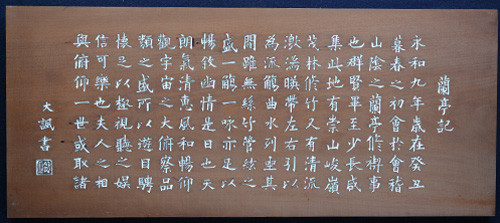 蘭亭記
永和九年歳在癸丑
暮春之初會於會稽
山陰之蘭亭修禊事
也群賢畢至少長咸
集此地有崇山峻嶺
茂林修竹又有清流
激湍暎帶左右引以
為流觴曲水列坐其
間雖無絲竹管弦之
盛一觴一咏亦足以
暢敘幽情是日也天
朗氣清惠風和暢仰
觀宇宙之大俯察品
類之盛所以遊目騁
懷足以極視聽之娛
信可樂也夫人之相
與俯仰一世或取諸
大諷書